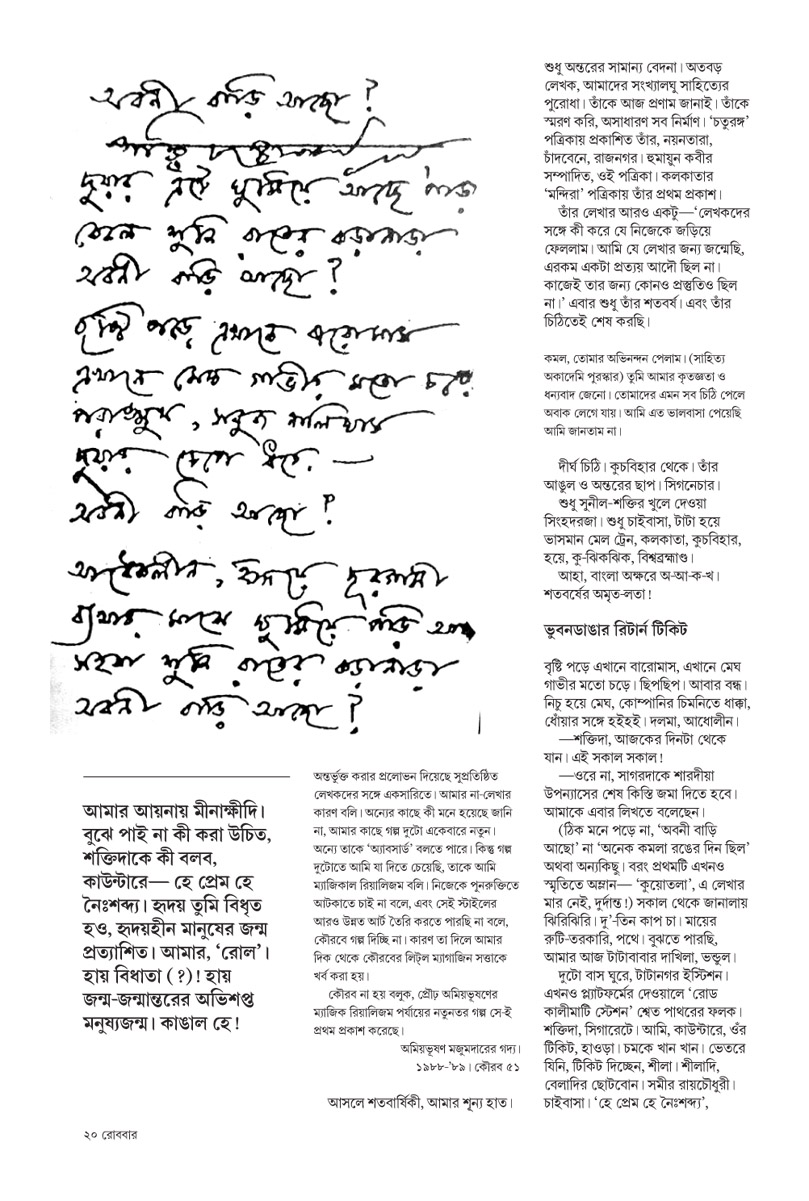 অবনী বাড়ি আছো?
দুয়ার এঁটে ঘুমিয়ে আছে পাড়া
কেবল শুনি রাতের কড়ানাড়া
অবনী বাড়ি আছো?
বৃষ্টি পড়ে এখানে বারোমাস
এখানে মেঘ গাভীর মতো চরে
পরাঙ্মুখ, সবুজ নালিঘাস
দুয়ার চেপে ধরে —
অবনী বাড়ি আছো?
আধেকলীন, হৃদয়ে দূরগামী
ব্যথার মাঝে ঘুমিয়ে পড়ি আমি
সহসা শুনি রাতের কড়ানাড়া
অবনী বাড়ি আছো?
আমার আয়নায় মীনাক্ষীদি।
বুঝে পাই না কী করা উচিত,
শক্তিদাকে কী বলব,
কাউন্টারে— হে প্রেম হে
নৈঃশব্দ্য। হৃদয় তুমি বিধৃত
হও, হৃদয়হীন মানুষের জন্ম
প্রত্যাশিত। আমার, ‘রোল’।
হায় বিধাতা (?)! হায়
জন্ম-জন্মান্তরের অভিশপ্ত
মনুষ্যজন্ম। কাঙাল হে!
অন্তর্ভূক্ত করার প্রলোভন দিয়েছে সুপ্রতিষ্ঠিত
লেখকদের সঙ্গে একসারিতে। আমার না-লেখার
কারণ বলি। অন্যের কাছে কী মনে হয়েছে জানি
না, আমার কাছে গল্প দুটো একেবারে নতুন।
অন্যে তাকে ‘অ্যাবসার্ড’ বলতে পারে। কিন্তু গল্প
দুটোতে আমি যা দিতে চেয়েছি, তাকে আমি
ম্যাজিকাল রিয়ালিজম বলি। নিজেকে পুনরুক্তিতে
আটকাতে চাই না বলে, এবং সেই স্টাইলের
আরও উন্নত আর্ট তৈরি করতে পারছি না বলে,
কৌরবে গল্প দিচ্ছি না। কারণ তা দিলে আমার
দিক থেকে কৌরবের লিট্‌ল ম্যাগাজিন সত্তাকে
খর্ব করা হয়।
কৌরব না হয় বলুক, প্রৌঢ় অমিয়ভূষণের
ম্যাজিক রিয়ালিজম পর্যায়ের নতুনতর গল্প সে-ই
প্রথম প্রকাশ করেছে।
অমিয়ভূষণ মজুমদারের গদ্য।
১৯৮৮-’৮৯। কৌরব ৫১
আসলে শতবার্ষিকী, আমার শূন্য হাত।
শুধু অন্তরের সামান্য বেদনা। অতবড়
লেখক, আমাদের সংখ্যালঘু সাহিত্যের
পুরোধা। তাঁকে আজ প্রণাম জানাই। তাঁকে
স্মরণ করি, অসাধারণ সব নির্মাণ। ‘চতুরঙ্গ’
পত্রিকায় প্রকাশিত তাঁর, নয়নতারা,
চাঁদবেনে, রাজনগর। হুমায়ুন কবীর
সম্পাদিত, ওই পত্রিকা। কলকাতার
‘মন্দিরা’ পত্রিকায় তাঁর প্রথম প্রকাশ।
তাঁর লেখার আরও একটু—‘লেখকদের
সঙ্গে কী করে যে নিজেকে জড়িয়ে
ফেললাম। আমি যে লেখার জন্য জন্মেছি,
এরকম একটা প্রত্যয় আদৌ ছিল না।
কাজেই তার জন্য কোনও প্রস্তুতিও ছিল
না।’ এবার শুধু তাঁর শতবর্ষ। এবং তাঁর
চিঠিতেই শেষ করছি।
কমল, তোমার অভিনন্দন পেলাম। (সাহিত্য
অকাদেমি পুরস্কার) তুমি আমার কৃতজ্ঞতা ও
ধন্যবাদ জেনো। তোমাদের এমন সব চিঠি পেলে
অবাক লেগে যায়। আমি এত ভালবাসা পেয়েছি
আমি জানতাম না।
দীর্ঘ চিঠি। কুচবিহার থেকে। তাঁর
আঙুল ও অন্তরের ছাপ। সিগনেচার।
শুধু সুনীল-শক্তির খুলে দেওয়া
সিংহদরজা। শুধু চাইবাসা, টাটা হয়ে
ভাসমান মেল ট্রেন, কলকাতা, কুচবিহার,
হয়ে, কু-ঝিকঝিক, বিশ্বব্রহ্মাণ্ড।
আহা, বাংলা অক্ষরে অ-আ-ক-খ।
শতবর্ষের অমৃত-লতা!
ভুবনডাঙার রিটার্ন টিকিট
বৃষ্টি পড়ে এখানে বারোমাস, এখানে মেঘ
গাভীর মতো চড়ে। ছিপছিপ। আবার বন্ধ।
নিচু হয়ে মেঘ, কোম্পানির চিমনিতে ধাক্কা,
ধোঁয়ার সঙ্গে হইহই। দলমা, আধোলীন।
—শক্তিদা, আজকের দিনটা থেকে
যান। এই সকাল সকাল!
—ওরে না, সাগরদাকে শারদীয়া
উপন্যাসের শেষ কিস্তি জমা দিতে হবে।
আমাকে এবার লিখতে বলেছেন।
(ঠিক মনে পড়ে না, ‘অবনী বাড়ি
আছো’ না ‘অনেক কমলা রঙের দিন ছিল’
অথবা অন্যকিছু। বরং প্রথমটি এখনও
স্মৃতিতে অম্লান— ‘কুয়োতলা’, এ লেখার
মার নেই, দুর্দান্ত!) সকাল থেকে জানালায়
ঝিরিঝিরি। দু’-তিন কাপ চা। মায়ের
রুটি-তরকারি, পথে। বুঝতে পারছি,
আমার আজ টাটাবাবার দাখিলা, ভন্ডুল।
দুটো বাস ঘুরে, টাটানগর ইস্টিশন।
এখনও প্ল্যাটফর্মের দেওয়ালে ‘রোড
কালীমাটি স্টেশন’ শ্বেত পাথরের ফলক।
শক্তিদা, সিগারেটে। আমি, কাউন্টারে, ওঁর
টিকিট, হাওড়া। চমকে খান খান। ভেতরে
যিনি, টিকিট দিচ্ছেন, শীলা। শীলাদি,
বেলাদির ছোটবোন। সমীর রায়চৌধুরী।
চাইবাসা। ‘হে প্রেম হে নৈঃশব্দ্য’,
২০ রোববার